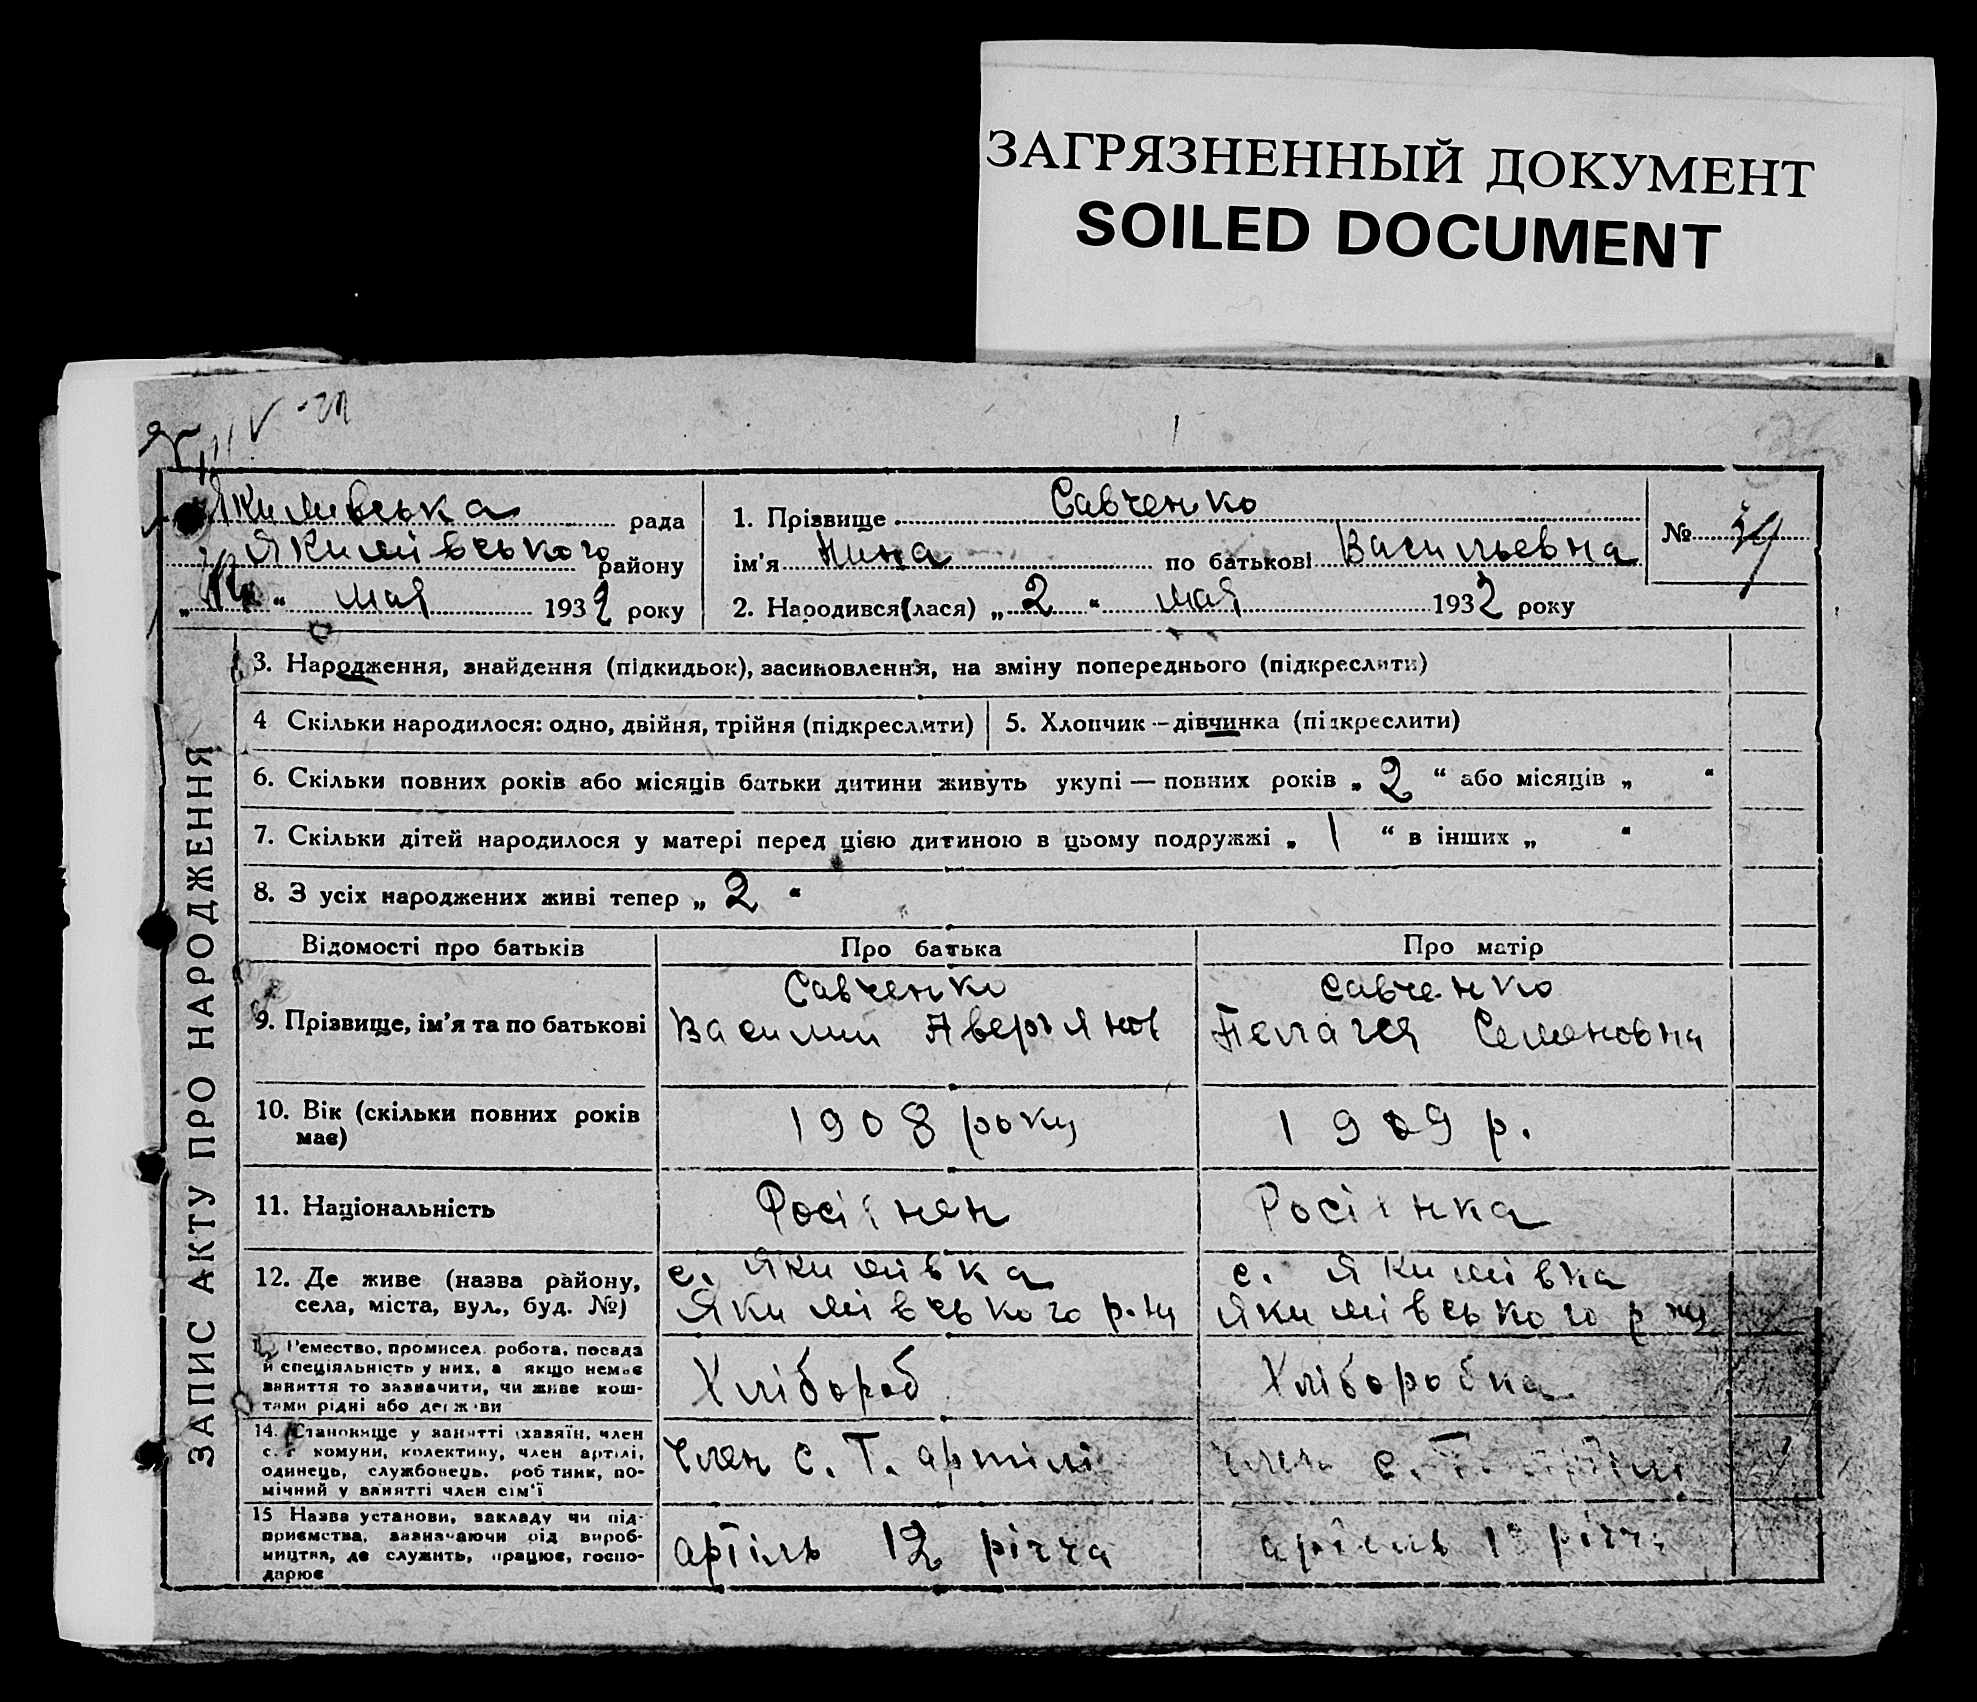 ЗАГРЯЗНЕННЫЙ ДОКУМЕНТ
SOILED DOCUMENT
ЗАПИС АКТУ ПРО НАРОДЖЕННЯ
Якимівська рада
Якимівського району
„ “ мая 1932 року
1. Прізвище Савченко
ім’я Нина по батькові Васильевна
2. Народився(лася) „ 2 “ мая 1932 року
№ 34
3. Народження, знайдення (підкидьок), засиновлення, на зміну попереднього (підкреслити)
4 Скільки народилося: одно, двійня, трійня (підкреслити)
5. Хлопчик — дівчинка (підкреслити)
6. Скільки повних років або місяців батьки дитини живуть укупі — повних років „ 2 “ або місяців „ “
7. Скільки дітей народилося у матері перед цією дитиною в цьому подружжі „ 1 “ в інших „ “
8. З усіх народжених живі тепер „ 2 “
Відомості про батьків Про батька Про матір
Савченко Савченко
9. Прізвище, ім’я та по батькові Василий Аверьянов Пелагея Семеновна
10. Вік (скільки повних років 1908 року 1909 р.
має)
11. Національність Росіянен Росіянка
12. Де живе (назва району, с. Якимівка с. Якимівка
села, міста, вул., буд. №) Якимівського р-ну Якимівського р ну
13. Ремество, промисел, робота, посада
й спеціяльність у них, а якщо немає Хлібороб Хліборобка
заняття то зазначити, чи живе кош-
тами рідні або держави
14. Становище у занятті (хазяїн, член
с. г. комуни, колективу, член артілі, член с. г. артілі член с. г. артілі
одинець, службовець, робітник, по-
мічний у занятті член сім’ї
15 Назва установи, закладу чи під-
приємства, зазначаючи рід вироб- артіль 12 річча артіль 12 річча
ництва, де служить, працює, госпо-
дарює